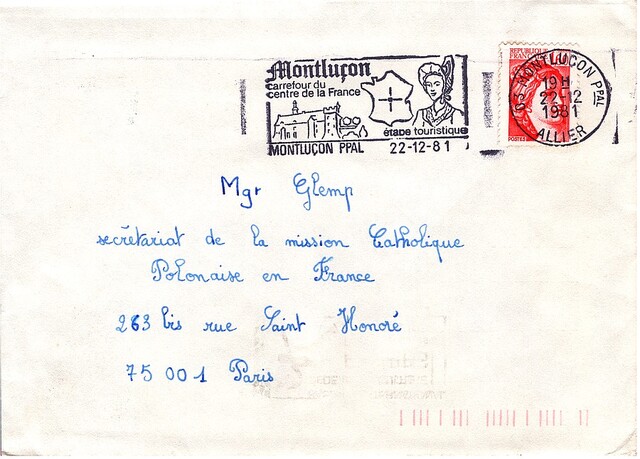 Montluçon
carrefour du
centre de la France
étape touristique
MONTLUÇON PPAL 22-12-81
REPUBLIQUE
FRANCAISE
MONTLUCON PPAL
19H
22-12
1981
ALLIER
POSTES
Mgr Glemp
secrétariat de la mission Catholique
Polonaise en France
263 bis rue Saint Honoré
75 001 Paris